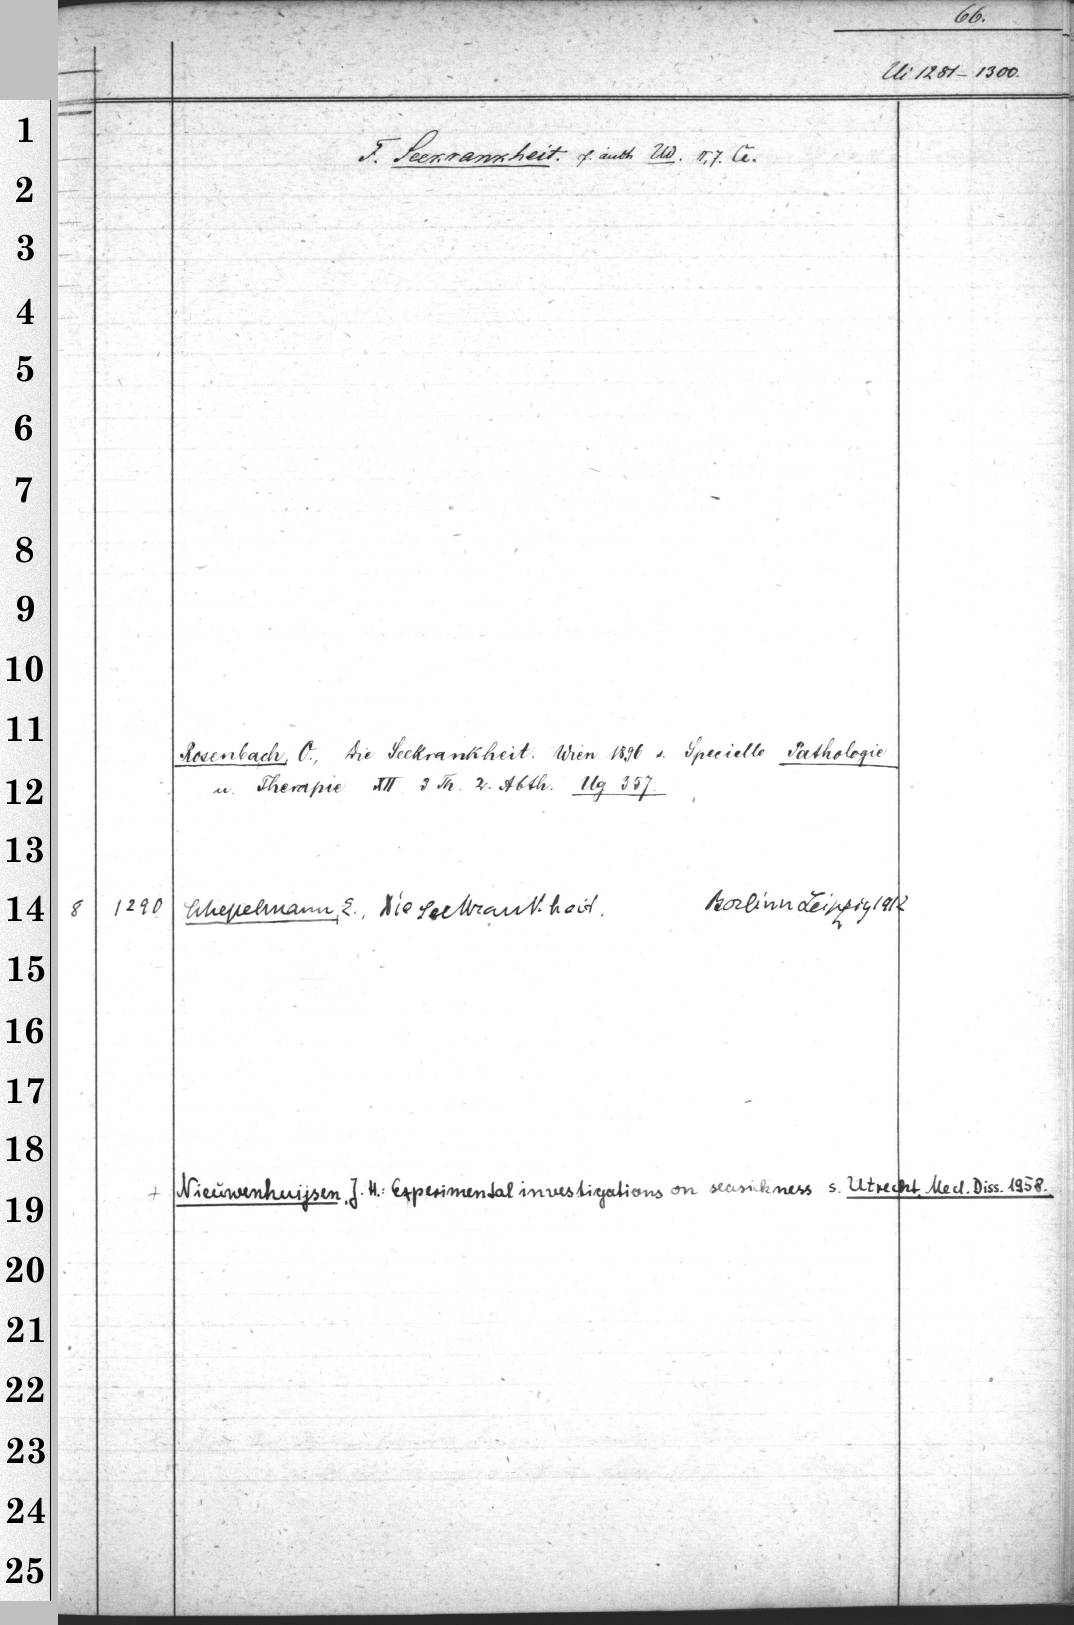 66.
Ui 1281-1300.
1
F. Seekrankheit. s. auch Ud.
2
3
4
5
6
7
8
9
10
11
Rosenbach, O., Die Seekrankheit. Wien 1896 s. Specielle Pathologie
12
u. Therapie XII 3 Th. 2. Abth. Ug 357.
13
14 8 1290 Schepelmann, E., Die Seekrankheit. Berlin u Leipzig 1912
15
16
17
18
+ Nieuwenhuijsen, J. H.: Experimental investigations on seasickness s. Utrecht, Med. Diss. 1958.
19
20
21
22
23
24
25